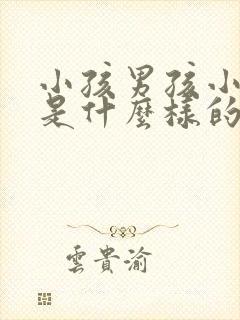 小孩男孩小
是什麼樣的
雲貴渝